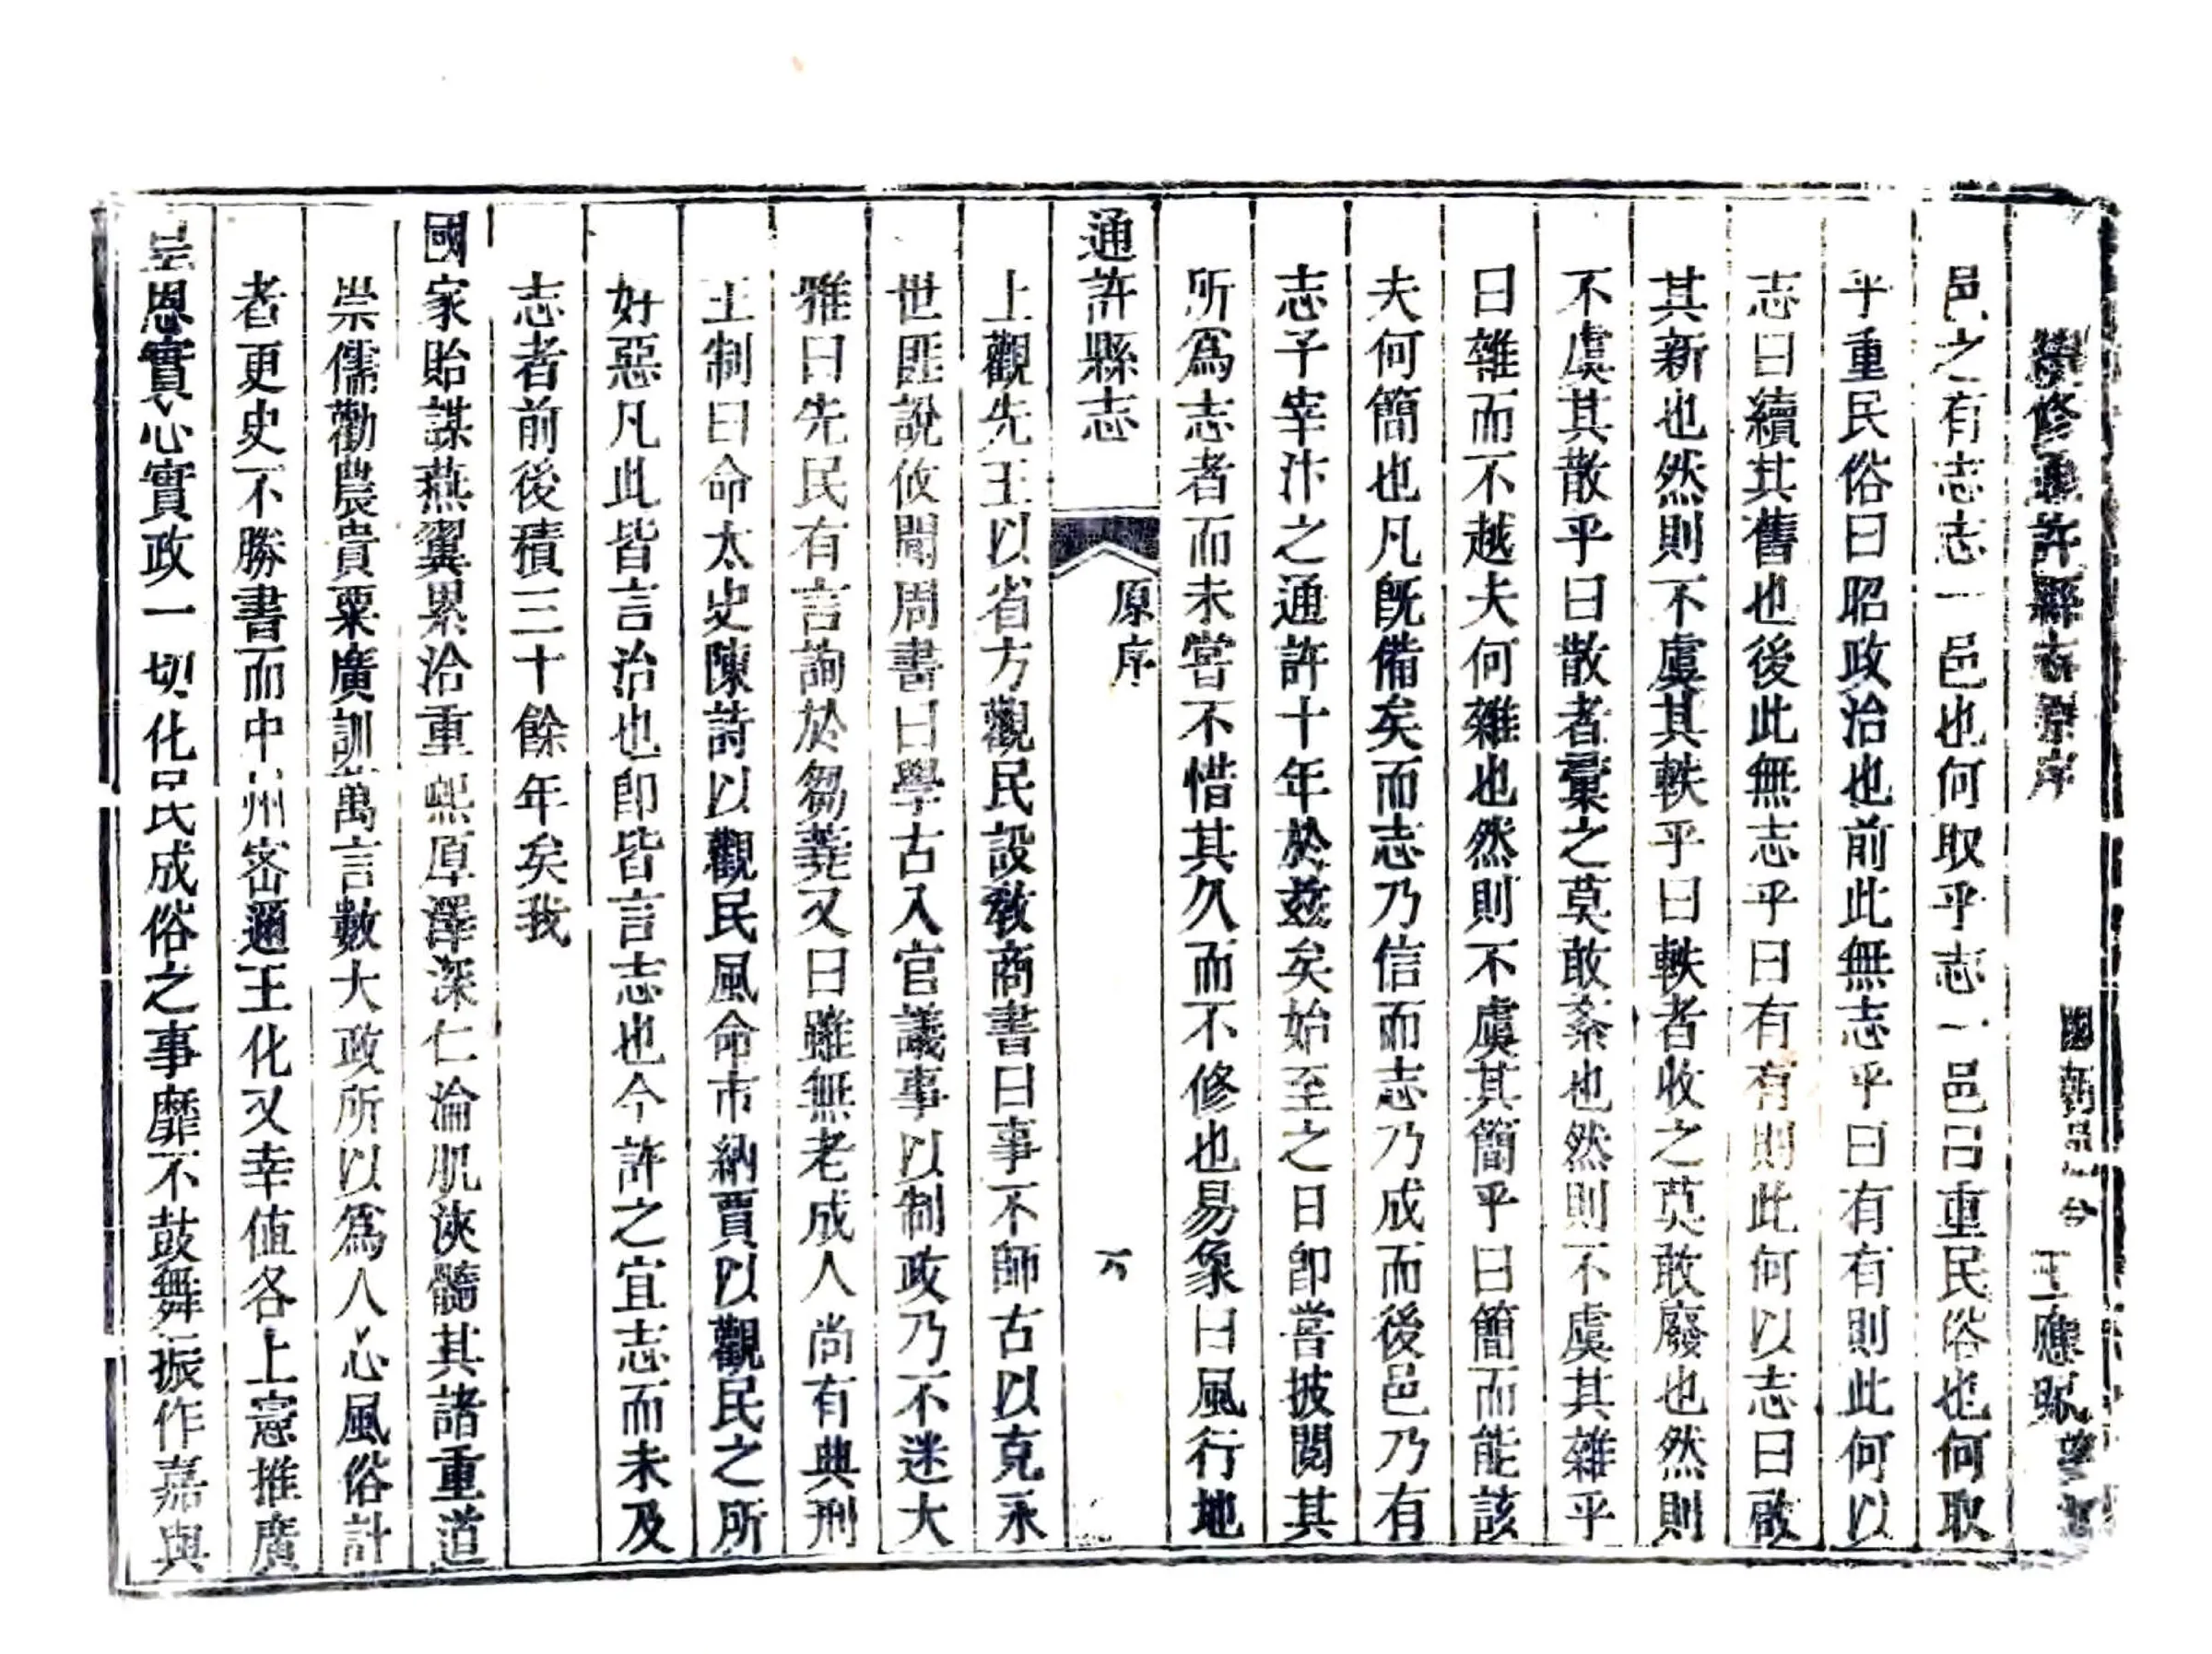 續修通許縣志原序
國朝邑令 王應珮
邑之有志志一邑也何取乎志一邑曰重民俗也何取
乎重民俗曰昭政治也前此無志乎曰有有則此何以
志曰續其舊也後此無志乎曰有有則此何以志曰啟
其新也然則不虞其軼乎曰軼者收之莫敢廢也然則
不虞其散乎曰散者彙之莫敢紊也然則不虞其雜乎
曰雜而不越夫何雜也然則不虞其簡乎曰簡而能該
夫何簡也凡旣備矣而志乃信而志乃成而後邑乃有
志予宰汴之通許十年於茲矣始至之日卽嘗披閱其
所爲志者而未嘗不惜其久而不修也易象曰風行地
通許縣志 原序
上觀先王以省方觀民設教商書曰事不師古以克永
世匪說攸聞周書曰學古入官議事以制政乃不迷大
雅曰先民有言詢於芻蕘又曰雖無老成人尚有典刑
王制曰命太史陳詩以觀民風命市納賈以觀民之所
好惡凡此皆言治也卽皆言志也今許之宜志而未及
志者前後積三十餘年矣我
國家貽謀燕翼累洽重熙厚澤深仁淪肌浹髓其諸重道
崇儒勸農貴粟廣訓萬言數大政所以爲人心風俗計
者更史不勝書而中州密邇王化又幸值各上憲推廣
皇恩實心實政一切化民成俗之事靡不鼓舞振作嘉與